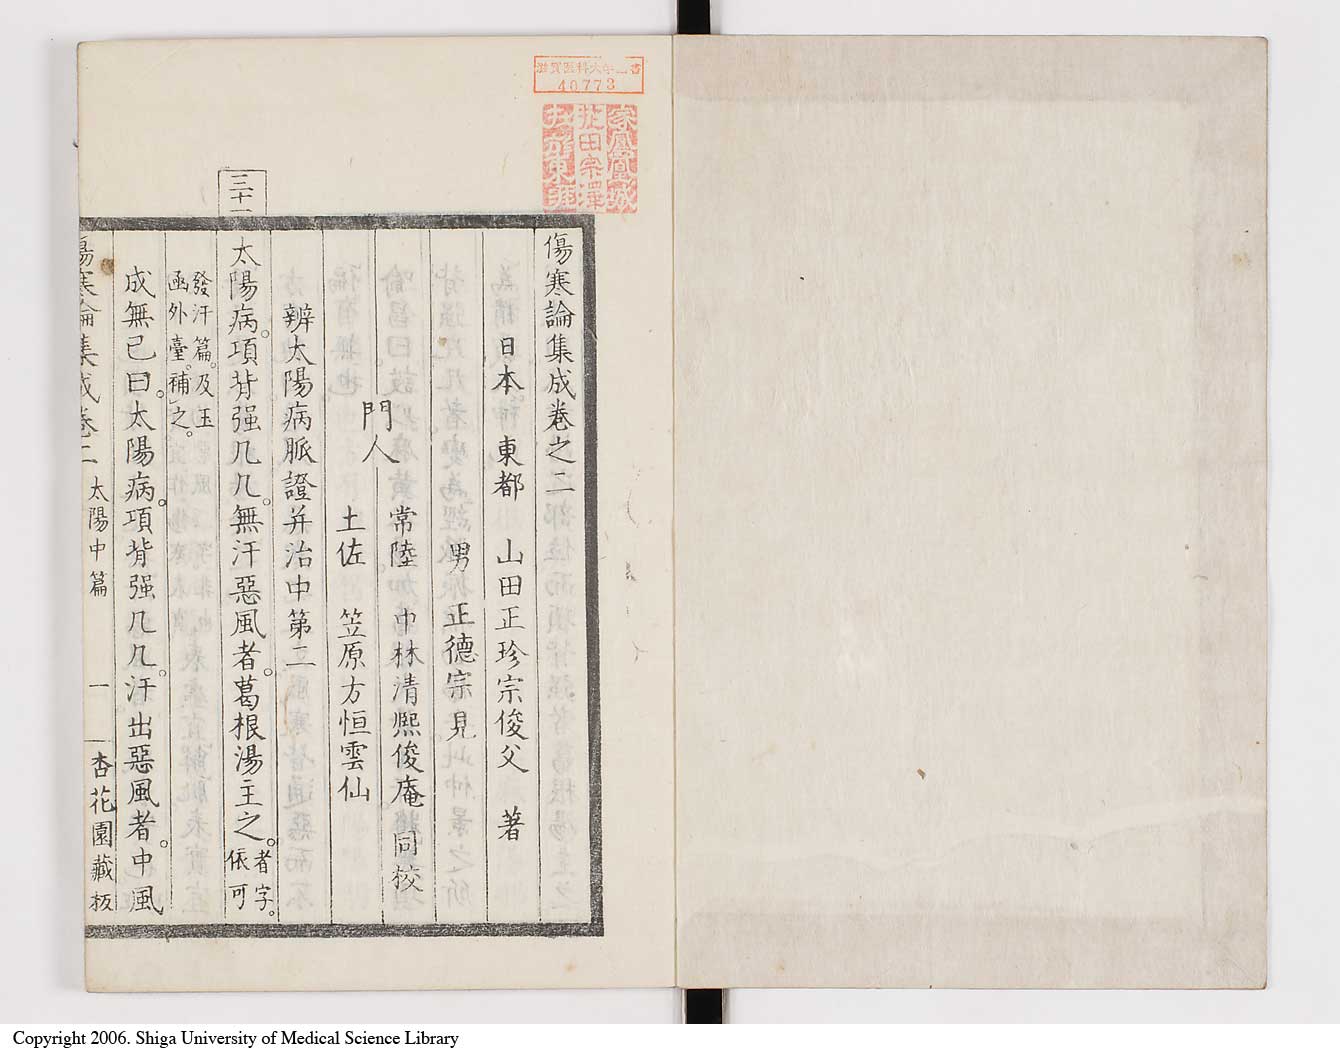 40773
傷寒論集成卷之二
日本 東都 山田正珍宗俊父 著
男 正德宗見
門人
常陸 中林清熙俊庵 同校
土佐 笠原方恒雲仙
辨太陽病脈證并治中第二
三十一
太陽病。項背强几几。無汗惡風者。葛根湯主之。者字。依可
發汗篇。及玉
函外臺。補之。
成無已曰。太陽病。項背强几几。汗出惡風者。中風
傷寒論集成卷二 太陽中篇 一 杏花園藏板
Copyright 2006. Shiga University of Medical Science Library